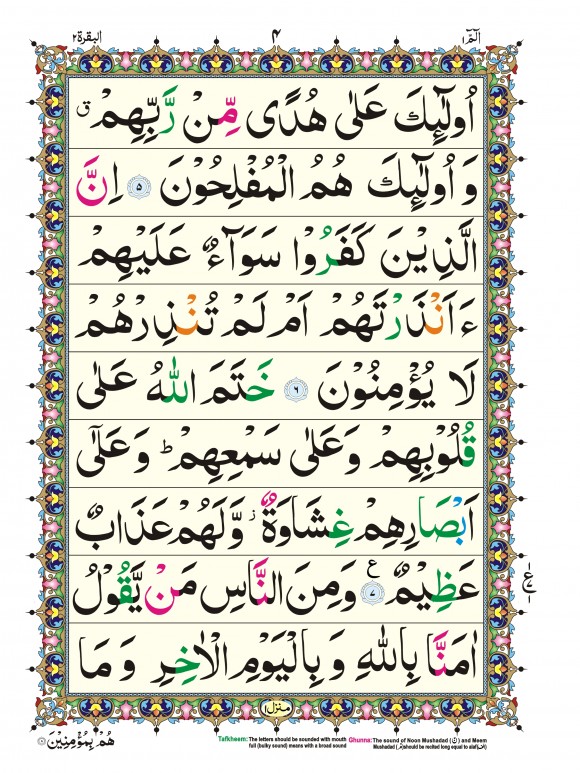 الٓمّٓ ۱
۴
البقرة ۲
اُولٰٓئِكَ عَلٰى هُدًى مِّنْ رَّبِّهِمْ ۗ
وَ اُولٰٓئِكَ هُمُ الْمُفْلِحُوْنَ ۝۵ اِنَّ
الَّذِيْنَ كَفَرُوْا سَوَآءٌ عَلَيْهِمْ
ءَاَنْذَرْتَهُمْ اَمْ لَمْ تُنْذِرْهُمْ
لَا يُؤْمِنُوْنَ ۝۶ خَتَمَ اللّٰهُ عَلٰى
قُلُوْبِهِمْ وَعَلٰى سَمْعِهِمْ ؕ وَعَلٰٓى
اَبْصَارِهِمْ غِشَاوَةٌ ز وَّلَهُمْ عَذَابٌ
عَظِيْمٌ ۝۷ ع وَمِنَ النَّاسِ مَنْ يَّقُوْلُ
اٰمَنَّا بِاللّٰهِ وَ بِالْيَوْمِ الْاٰخِرِ وَ مَا
منزل ۱
هُمْ بِمُؤْمِنِيْنَ ۝۸
Tafkheem: The letters should be sounded with mouth full (bulky sound) means with a broad sound
Ghunna: The sound of Noon Mushadad (نّ) and Meem Mushadad (مّ) should be recited long equal to alaf